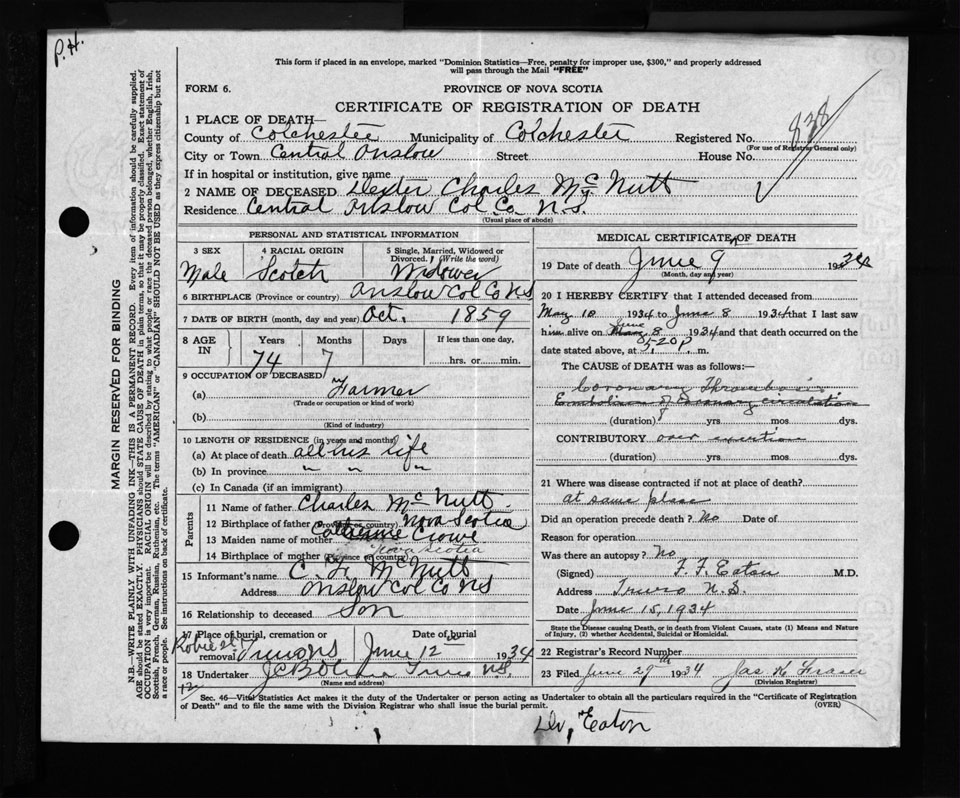 P.H.
This form if placed in an envelope, marked "Dominion Statistics—Free, penalty for improper use, $300," and properly addressed
will pass through the Mail "FREE"
FORM 6.
PROVINCE OF NOVA SCOTIA
CERTIFICATE OF REGISTRATION OF DEATH
1 PLACE OF DEATH—
County of Colchester Municipality of Colchester Registered No. 838
(For use of Registrar General only)
City or Town Central Onslow Street House No.
If in hospital or institution, give name
2 NAME OF DECEASED Dexter Charles McNutt
Residence Central Onslow Col. Co. N.S.
(Usual place of abode)
PERSONAL AND STATISTICAL INFORMATION
3 SEX 4 RACIAL ORIGIN 5 Single, Married, Widowed or
Divorced. (Write the word)
Male Scotch Widower
6 BIRTHPLACE (Province or country) Onslow Col Co NS
7 DATE OF BIRTH (month, day and year) Oct. 1859
8 AGE IN Years Months Days If less than one day,
74 7 hrs. or min.
9 OCCUPATION OF DECEASED
(a) Farmer
(Trade or occupation or kind of work)
(b)
(Kind of industry)
10 LENGTH OF RESIDENCE (in years and months)
(a) At place of death all his life
(b) In province " " "
(c) In Canada (if an immigrant)
Parents
11 Name of father Charles McNutt
12 Birthplace of father (Province or country) Nova Scotia
13 Maiden name of mother Catherine Crowe
14 Birthplace of mother (Province or country) Nova Scotia
15 Informant's name C. F. McNutt
Address Onslow Col Co NS
16 Relationship to deceased Son
17 Place of burial, cremation or Date of burial
removal Robie St. Truro NS June 12 1934
18 Undertaker Truro N.S.
(Name and address)
12
MEDICAL CERTIFICATE OF DEATH
19 Date of death June 9 1934
(Month, day and year)
20 I HEREBY CERTIFY that I attended deceased from
May 10 1934 to June 8 1934 that I last saw
him alive on June 8 1934 and that death occurred on the
date stated above, at 5.20 p. m.
The CAUSE OF DEATH was as follows:—
Coronary Thrombosis
Embolism of Coronary circulation
(duration) yrs mos dys.
CONTRIBUTORY over exertion
(duration) yrs mos dys.
21 Where was disease contracted if not at place of death?
at same place
Did an operation precede death? No Date of
Reason for operation
Was there an autopsy? No
(Signed) F. F. Eaton M.D.
Address Truro N.S.
Date June 15, 1934
State the Disease causing Death, or in death from Violent Causes, state (1) Means and
Nature of Injury, (2) whether Accidental, Suicidal or Homicidal.
22 Registrar's Record Number
23 Filed June 29th 1934 Jas K Fraser
(Division Registrar)
Sec. 46—Vital Statistics Act makes it the duty of the Undertaker or person acting as Undertaker to obtain all the particulars required in the "Certificate of Registration
of Death" and to file the same with the Division Registrar who shall issue the burial permit.
(OVER)
Dr, Eaton
MARGIN RESERVED FOR BINDING
N.B.—WRITE PLAINLY WITH UNFADING INK—THIS IS A PERMANENT RECORD. Every item of information should be carefully supplied.
AGE should be stated EXACTLY. PHYSICIANS should STATE CAUSE OF DEATH in plain terms, so that it may be properly classified. Exact statement of
OCCUPATION is very important. RACIAL ORIGIN will be described by stating to what people or race the deceased person belonged, whether English, Irish,
Scottish, French, German, Russian, Ruthenian, etc. The terms "AMERICAN" or "CANADIAN" SHOULD NOT BE USED as they express citizenship but not
a race or people. See instructions on back of certificate.